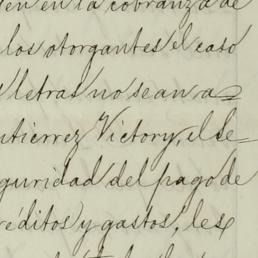 en en la cobranza de
los otorgantes el caso
letras no sean a=
utierrez Victory, el se
guridad del pago de
réditos y gastos, les